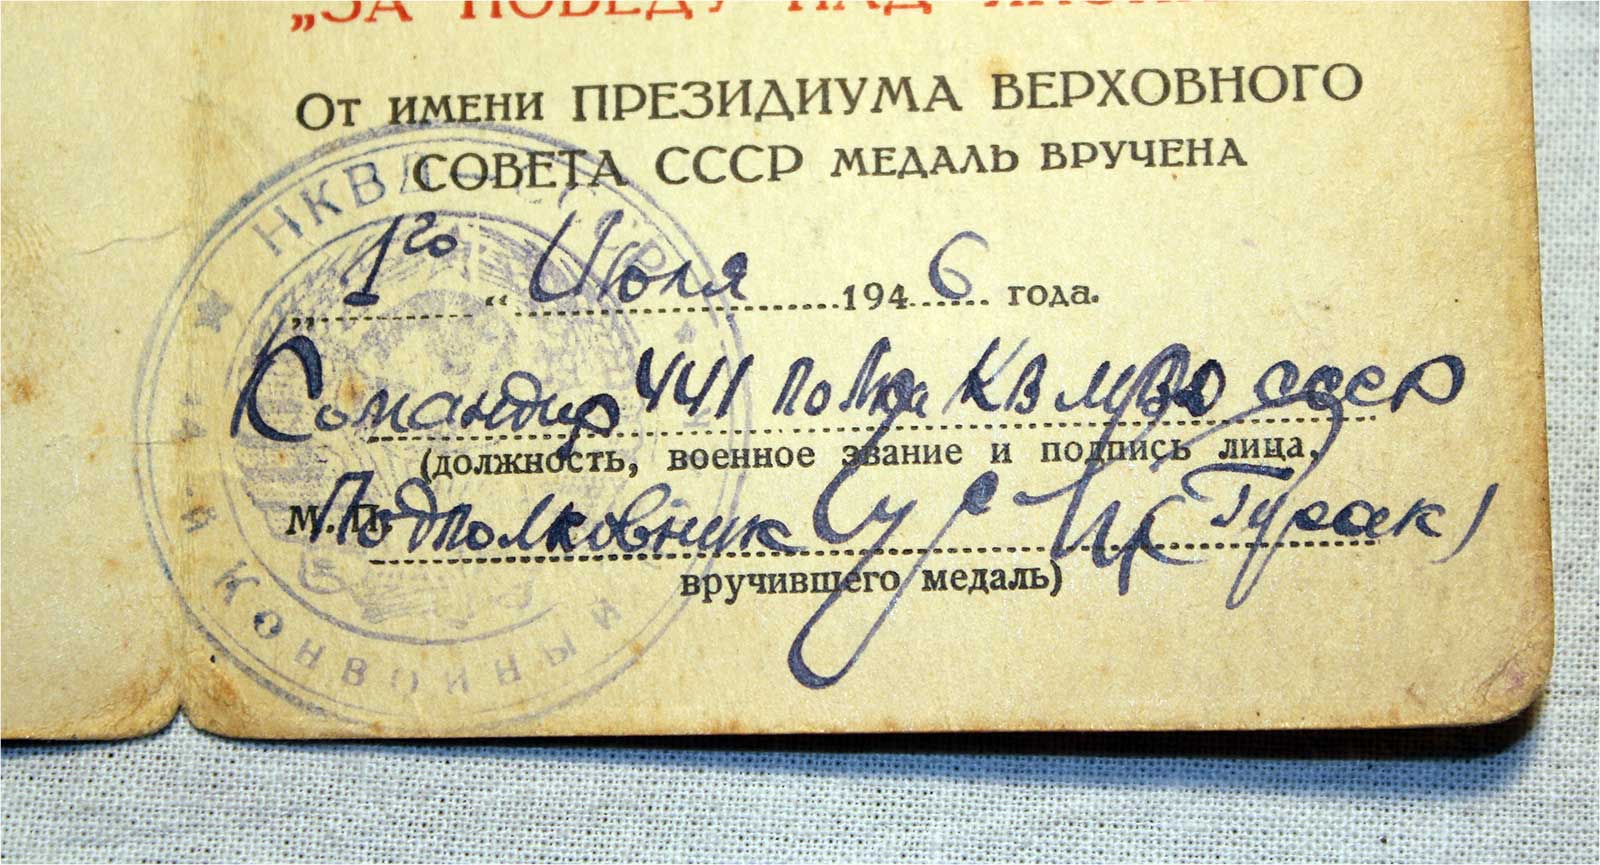 „ЗА ПОБЕДУ НАД ЯПОНИЕЙ
От имени ПРЕЗИДИУМА ВЕРХОВНОГО
СОВЕТА СССР МЕДАЛЬ ВРУЧЕНА
„ 1го " Июля 1946 года.
Командир 441 полка КВ МВД СССР
(должность, военное звание и подпись лица,
М. П. Подполковник (Гусак)
вручившего медаль)
НКВД СССР
Й КОНВОЙНЫЙ